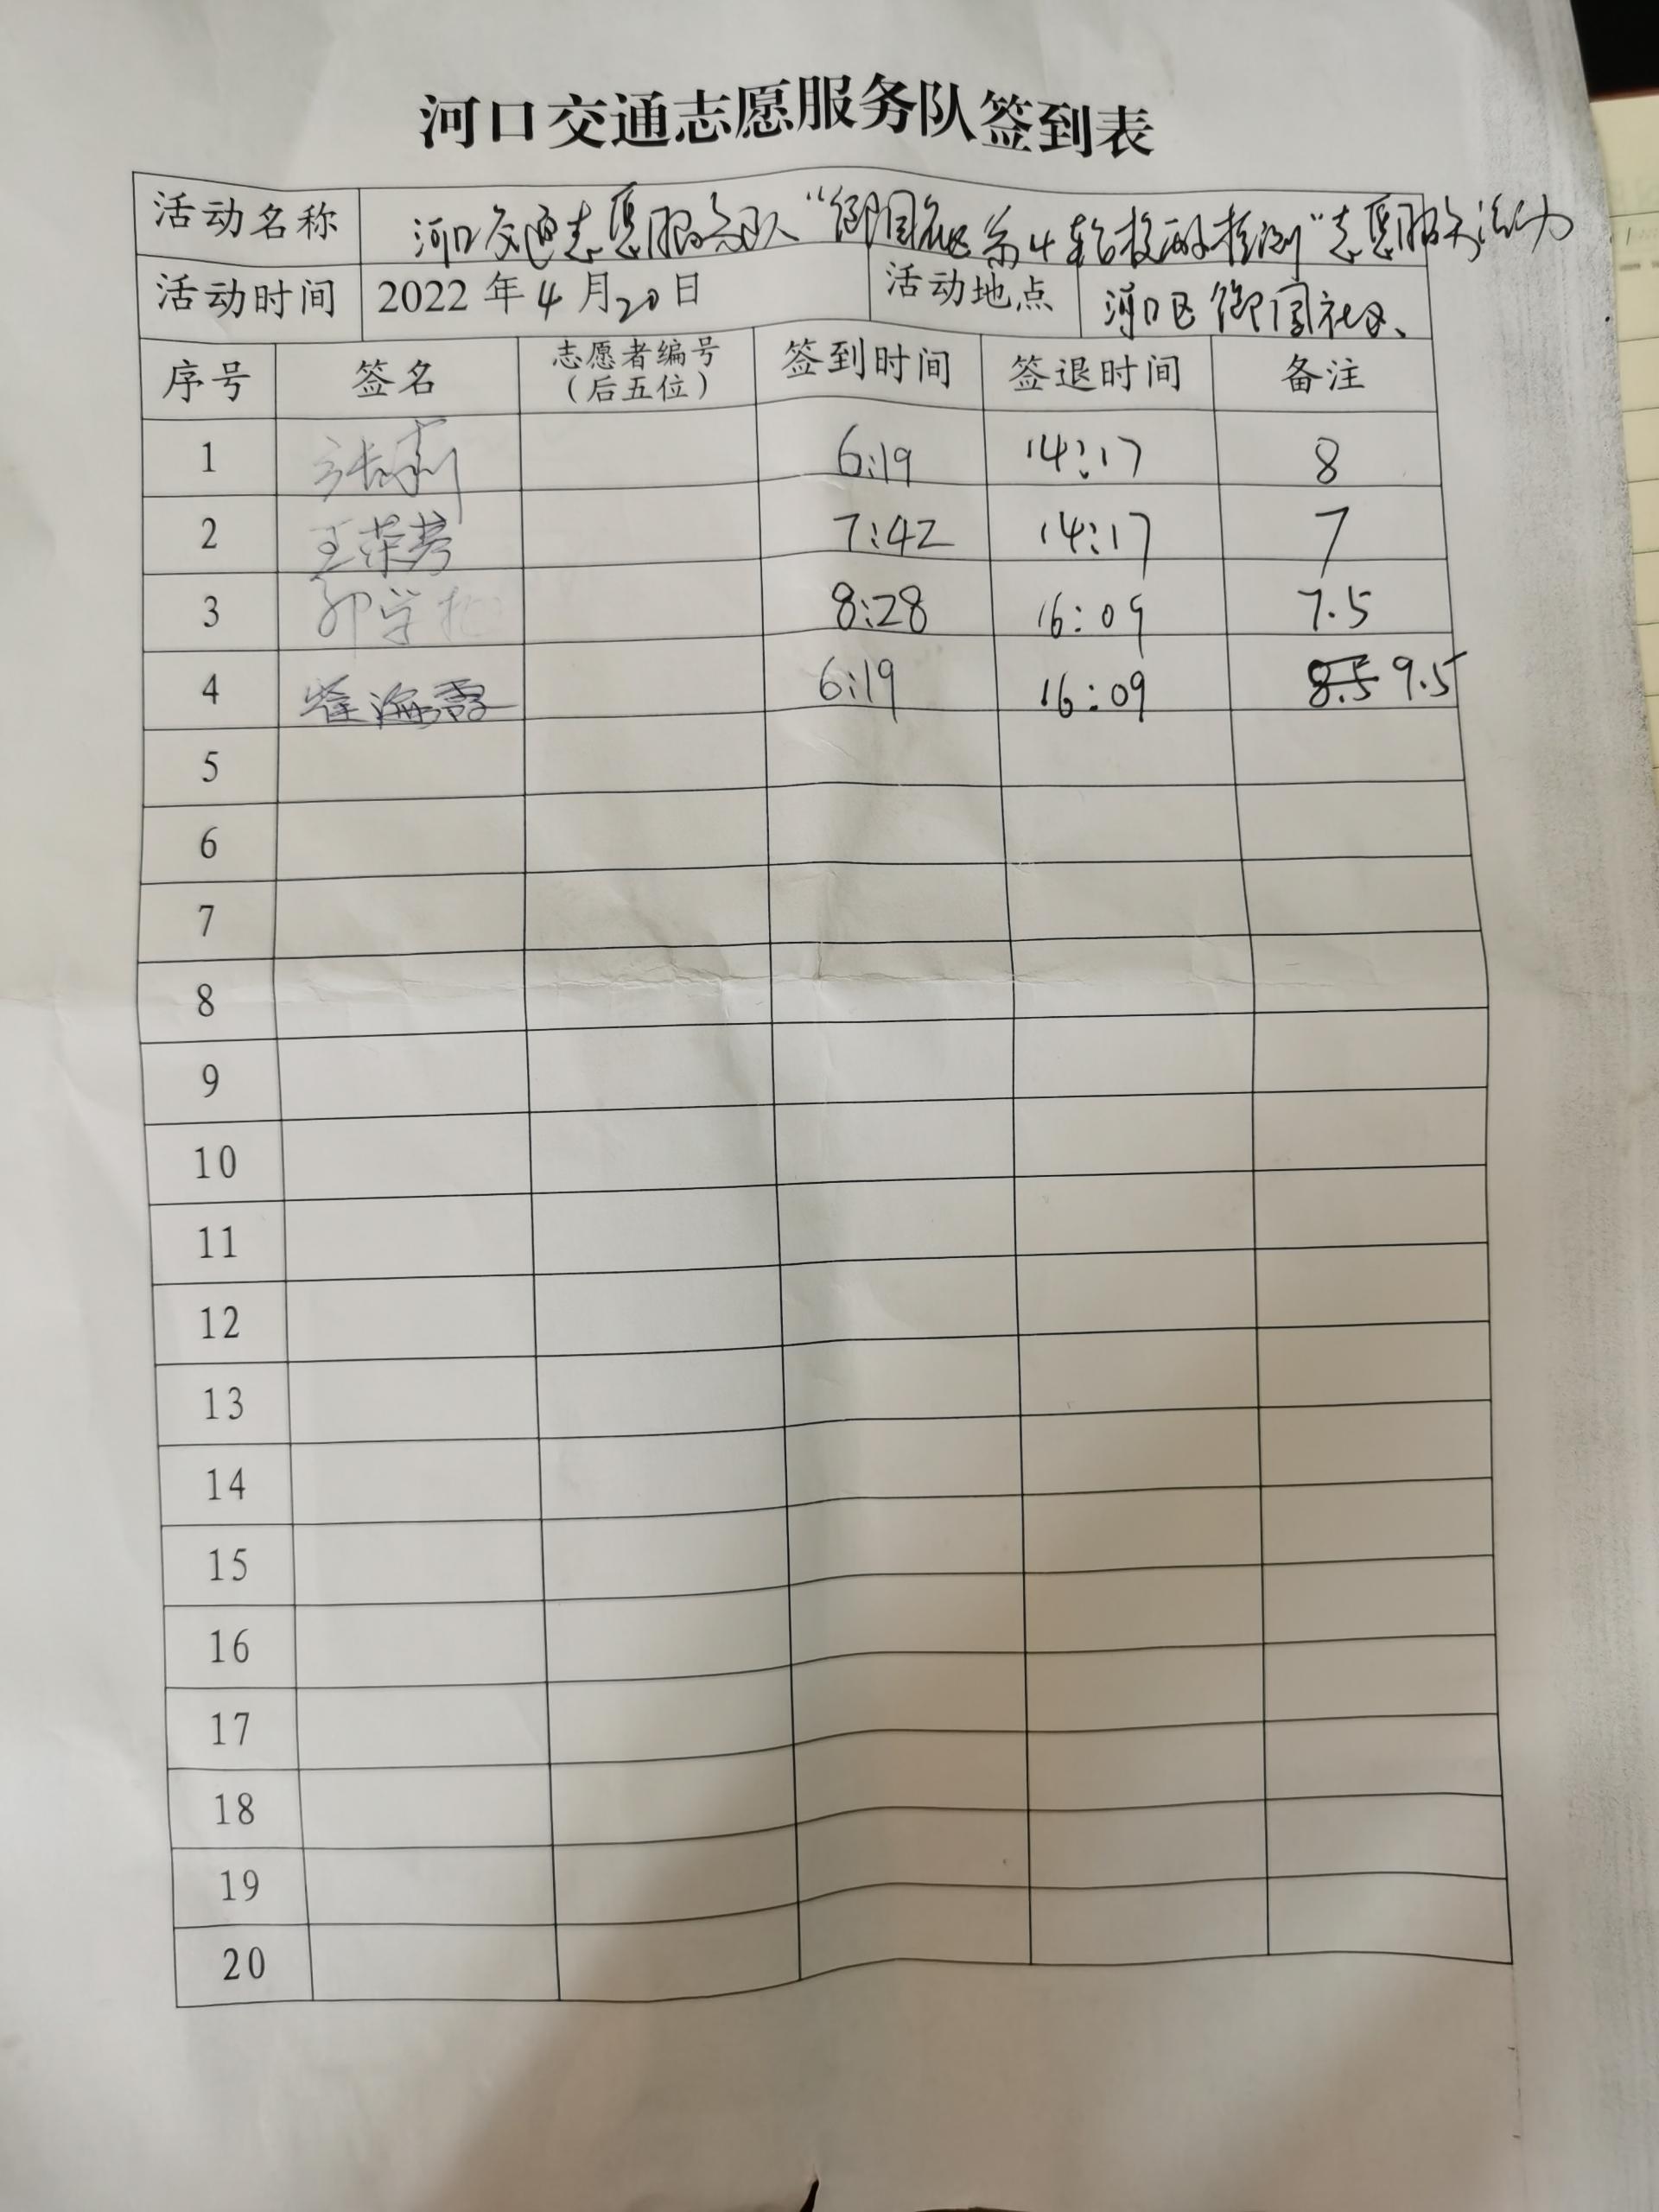 河口交通志愿服务队签到表
活动名称 河口交通志愿服务队“御园社区第4轮核酸检测”志愿服务活动
活动时间 2022年4月20日 活动地点 河口区御园社区、
序号 签名 志愿者编号（后五位） 签到时间 签退时间 备注
1 张莉 6:19 14:17 8
2 王荣芳 7:42 14:17 7
3 8:28 16:09 7.5
4 崔海霞 6:19 16:09 8.5 9.5
5
6
7
8
9
10
11
12
13
14
15
16
17
18
19
20